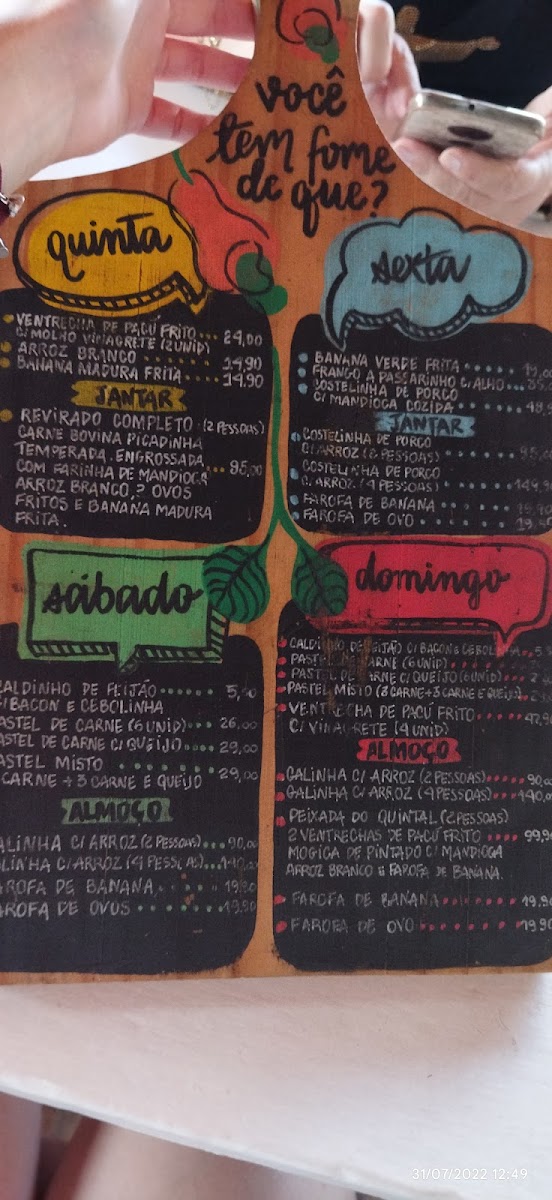 você
tem fome
de que?
quinta
VENTRECHA DE PACÚ FRITO... 24,00
C/ MOLHO VINAGRETE (2UNID)
ARROZ BRANCO ....... 14,90
BANANA MADURA FRITA.... 14,90
JANTAR
REVIRADO COMPLETO (2 PESSOAS)
CARNE BOVINA PICADINHA
TEMPERADA, ENGROSSADA
COM FARINHA DE MANDIOCA ... 95,00
ARROZ BRANCO, 2 OVOS
FRITOS E BANANA MADURA
FRITA.
sexta
BANANA VERDE FRITA
FRANGO A PASSARINHO C/ ALHO
COSTELINHA DE PORCO
C/ MANDIOCA COZIDA
JANTAR
COSTELINHA DE PORCO
C/ ARROZ (2 PESSOAS)
COSTELINHA DE PORCO
C/ ARROZ (4 PESSOAS)
FAROFA DE BANANA
FAROFA DE OVO
sábado
CALDINHO DE FEIJÃO
C/BACON E CEBOLINHA
PASTEL DE CARNE (6 UNID)... 26,00
PASTEL DE CARNE C/ QUEIJO.... 29,00
PASTEL MISTO ........ 29,00
CARNE + 3 CARNE E QUEIJO
ALMOÇO
GALINHA C/ ARROZ (2 PESSOAS)... 90,00
GALINHA C/ ARROZ (4 PESSOAS)... 140,00
FAROFA DE BANANA ....... 19,90
FAROFA DE OVOS ....... 19,90
domingo
CALDINHO DE FEIJÃO C/ BACON E CEBOLINHA
PASTEL DE CARNE (6 UNID)
PASTEL DE CARNE C/ QUEIJO (6 UNID)
PASTEL MISTO (3 CARNE+3 CARNE E QUEIJO)
VENTRECHA DE PACÚ FRITO
C/ VINAGRETE (4 UNID)
ALMOÇO
GALINHA C/ ARROZ (2 PESSOAS)
GALINHA C/ ARROZ (4 PESSOAS)... 140,0
PEIXADA DO QUINTAL (2 PESSOAS)
2 VENTRECHAS DE PACÚ FRITO .... 99,9
MOGICA DE PINTADO C/ MANDIOCA
ARROZ BRANCO E FAROFA DE BANANA.
FAROFA DE BANANA ....... 19,90
FAROFA DE OVO ........ 19,90
31/07/2022 12:49